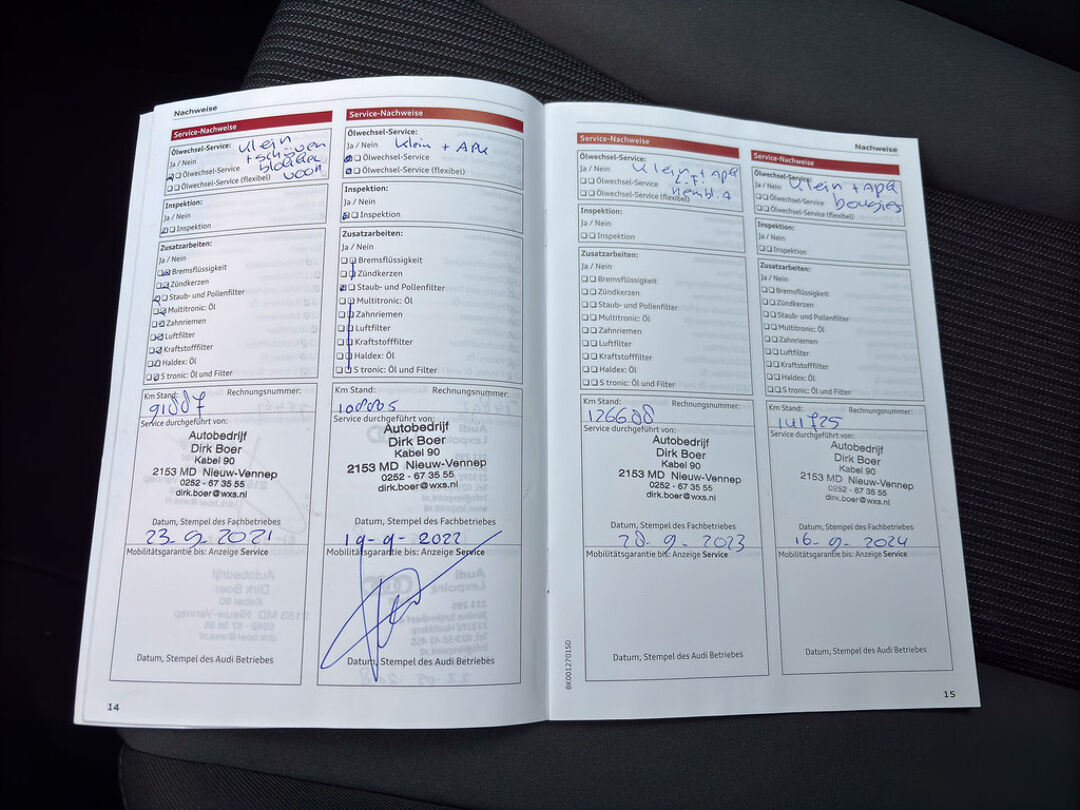 Nachweise
Service-Nachweise
Ölwechsel-Service: Klein
Ja / Nein + schijven
Ölwechsel-Service blokken
Ölwechsel-Service (flexibel) voor
Inspektion:
Ja / Nein
Inspektion
Zusatzarbeiten:
Ja / Nein
Bremsflüssigkeit
Zündkerzen
Staub- und Pollenfilter
Multitronic: Öl
Zahnriemen
Luftfilter
Kraftstofffilter
Haldex: Öl
S tronic: Öl und Filter
Km Stand: Rechnungsnummer:
91887
Service durchgeführt von:
Autobedrijf
Dirk Boer
Kabel 90
2153 MD Nieuw-Vennep
0252 - 67 35 55
dirk.boer@wxs.nl
Datum, Stempel des Fachbetriebes
23-9-2021
Mobilitätsgarantie bis: Anzeige Service
Datum, Stempel des Audi Betriebes
14
Service-Nachweise
Ölwechsel-Service:
Ja / Nein Klein + APK
Ölwechsel-Service
Ölwechsel-Service (flexibel)
Inspektion:
Ja / Nein
Inspektion
Zusatzarbeiten:
Ja / Nein
Bremsflüssigkeit
Zündkerzen
Staub- und Pollenfilter
Multitronic: Öl
Zahnriemen
Luftfilter
Kraftstofffilter
Haldex: Öl
S tronic: Öl und Filter
Km Stand: Rechnungsnummer:
Service durchgeführt von:
Autobedrijf
Dirk Boer
Kabel 90
2153 MD Nieuw-Vennep
0252 - 67 35 55
dirk.boer@wxs.nl
Datum, Stempel des Fachbetriebes
19-9-2022
Mobilitätsgarantie bis: Anzeige Service
Datum, Stempel des Audi Betriebes
Service-Nachweise
Ölwechsel-Service:
Ja / Nein Klein + APK
Ölwechsel-Service
Ölwechsel-Service (flexibel)
Inspektion:
Ja / Nein
Inspektion
Zusatzarbeiten:
Ja / Nein
Bremsflüssigkeit
Zündkerzen
Staub- und Pollenfilter
Multitronic: Öl
Zahnriemen
Luftfilter
Kraftstofffilter
Haldex: Öl
S tronic: Öl und Filter
Km Stand: Rechnungsnummer:
126688
Service durchgeführt von:
Autobedrijf
Dirk Boer
Kabel 90
2153 MD Nieuw-Vennep
0252 - 67 35 55
dirk.boer@wxs.nl
Datum, Stempel des Fachbetriebes
28-9-2023
Mobilitätsgarantie bis: Anzeige Service
Datum, Stempel des Audi Betriebes
8K0012701SD
Nachweise
Service-Nachweise
Ölwechsel-Service:
Ja / Nein Klein + APK
Ölwechsel-Service bougies
Ölwechsel-Service (flexibel)
Inspektion:
Ja / Nein
Inspektion
Zusatzarbeiten:
Ja / Nein
Bremsflüssigkeit
Zündkerzen
Staub- und Pollenfilter
Multitronic: Öl
Zahnriemen
Luftfilter
Kraftstofffilter
Haldex: Öl
S tronic: Öl und Filter
Km Stand: Rechnungsnummer:
141725
Service durchgeführt von:
Autobedrijf
Dirk Boer
Kabel 90
2153 MD Nieuw-Vennep
0252 - 67 35 55
dirk.boer@wxs.nl
Datum, Stempel des Fachbetriebes
16-9-2024
Mobilitätsgarantie bis: Anzeige Service
Datum, Stempel des Audi Betriebes
15